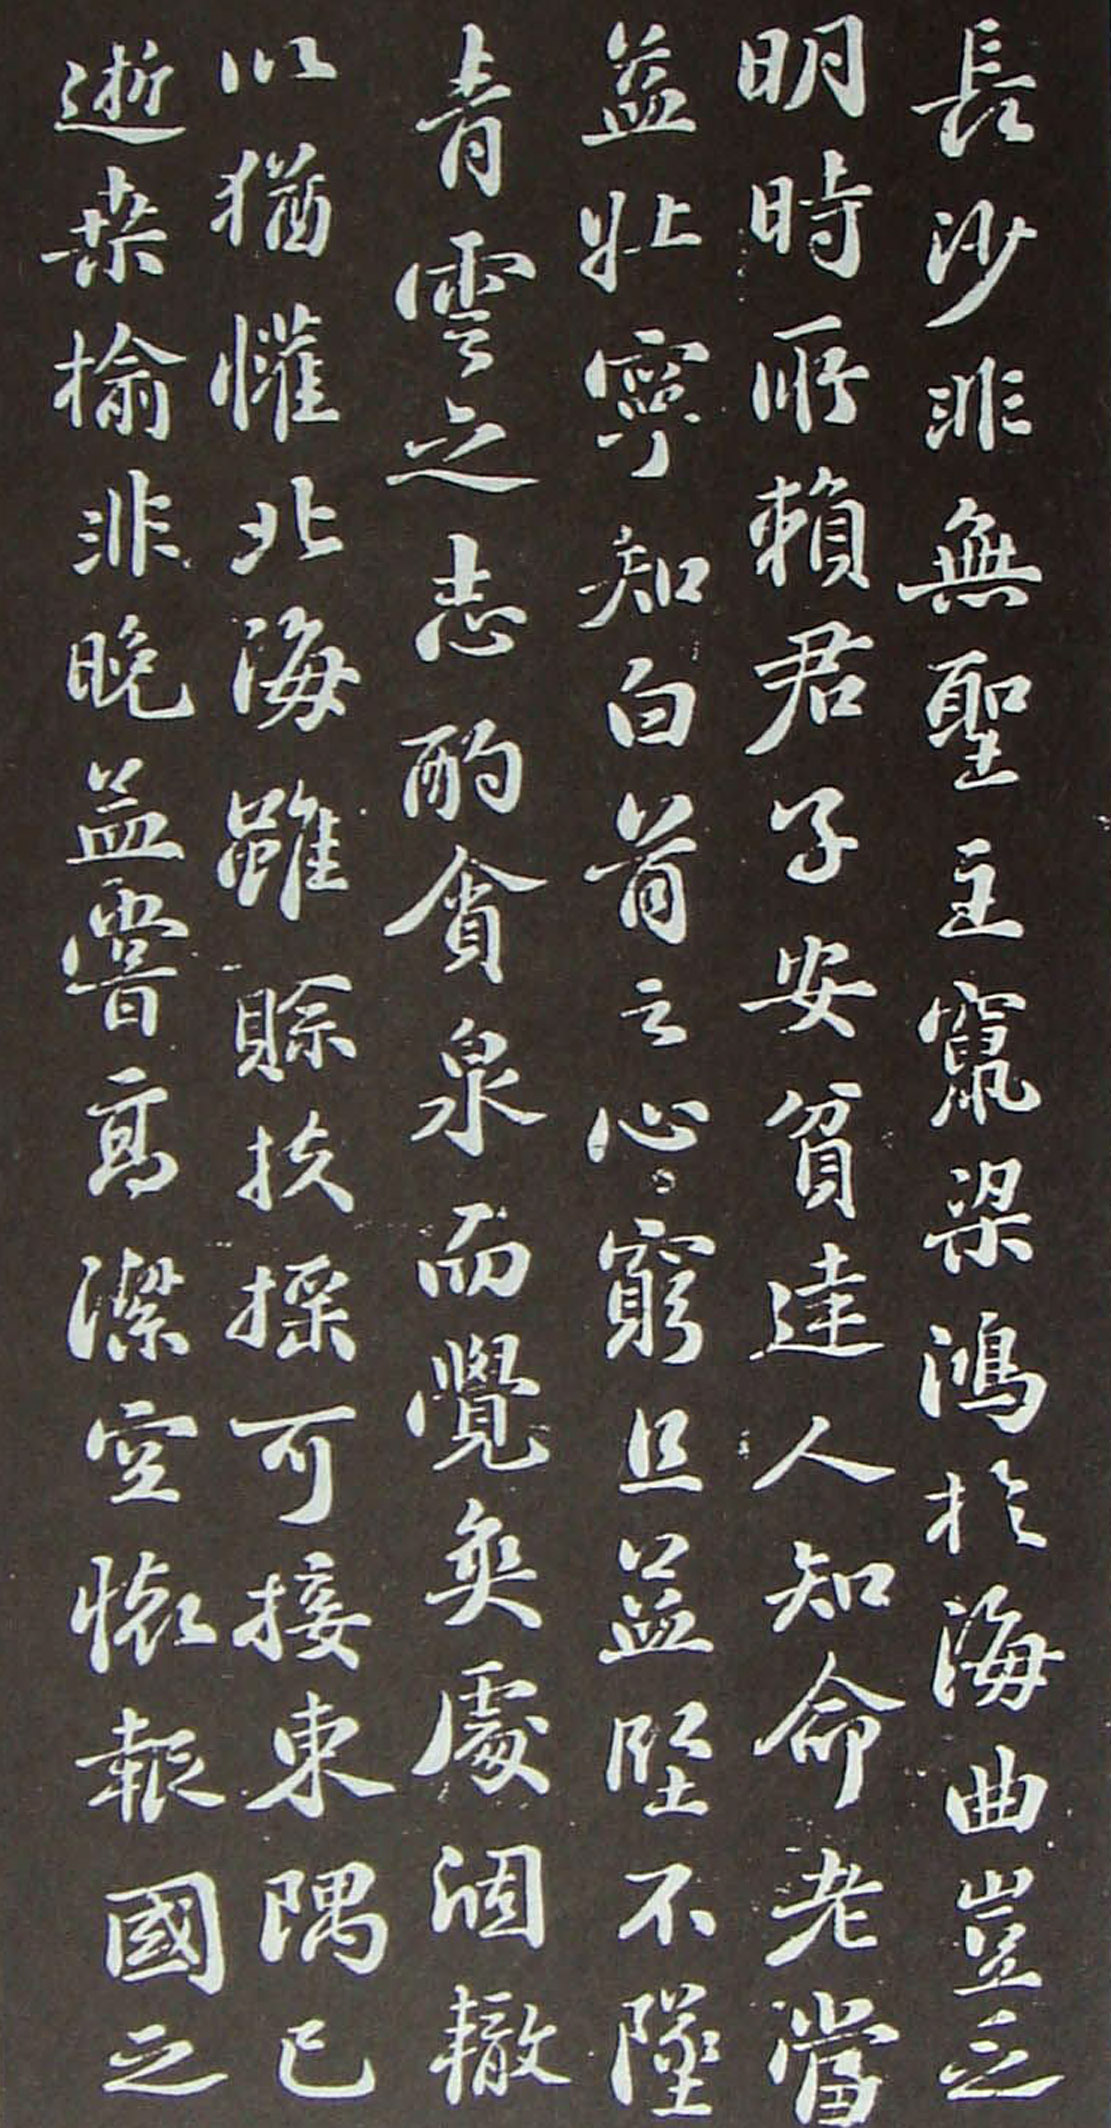 長沙非無聖主竄梁鴻於海曲豈乏
明時所賴君子安貧達人知命老當
益壯寧知白首之心窮且益堅不墜
青雲之志酌貪泉而覺爽處涸轍
以猶懽北海雖賒扶搖可接東隅已
逝桒榆非晚益嘗高潔空懷報國之